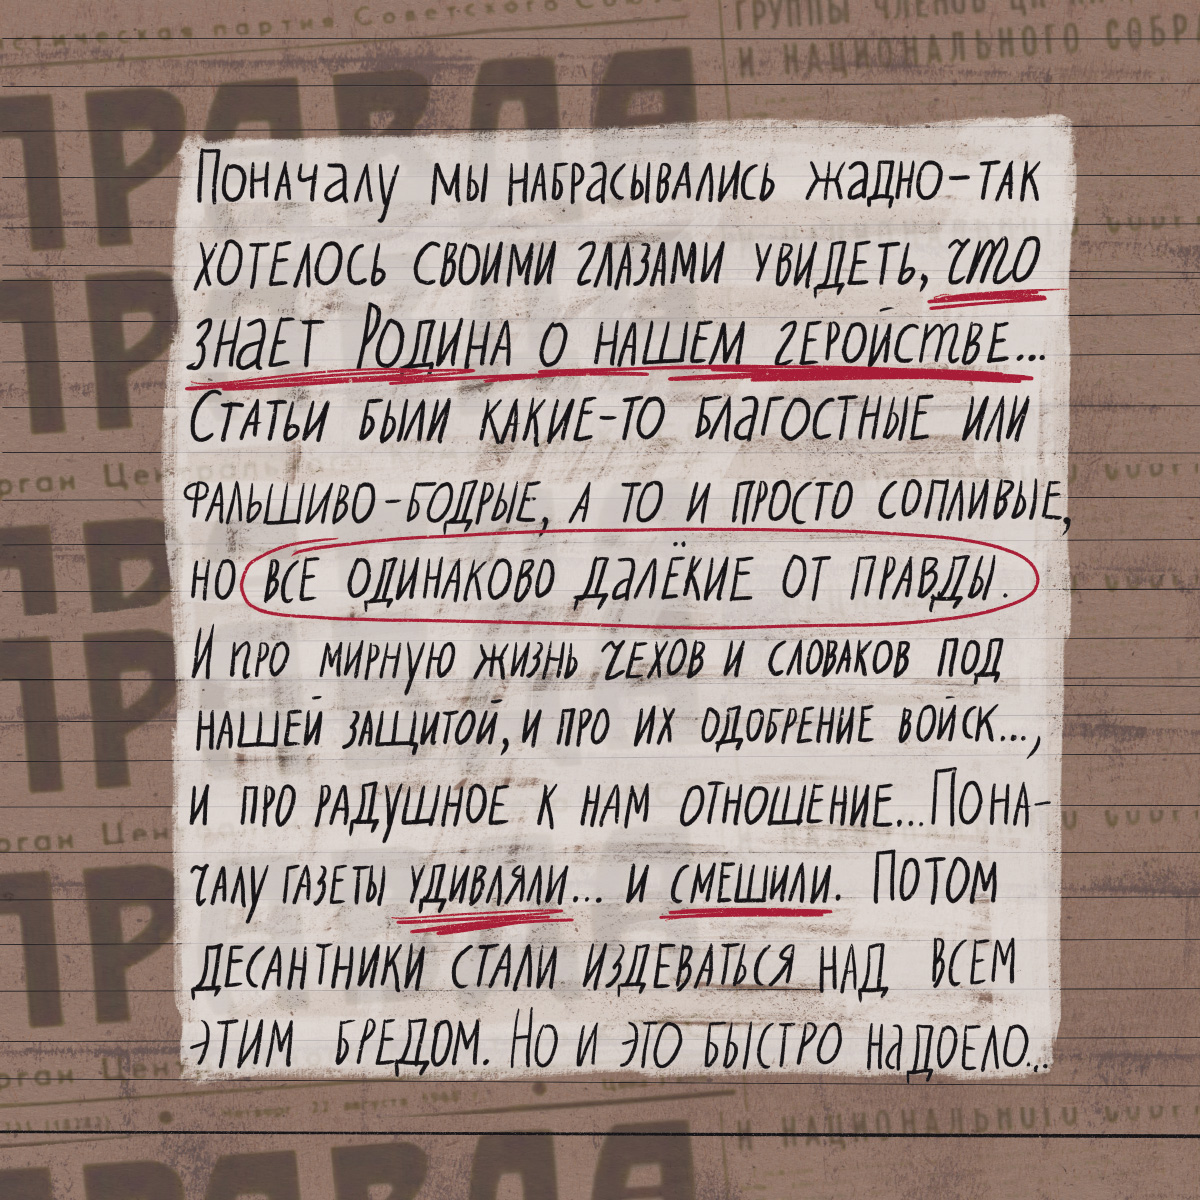 стическая партия Советского Союза
ГРУППЫ ЧЛЕНОВ ЦК
И НАЦИОНАЛЬНОГО СОБР
ПРАВДА
Поначалу мы набрасывались жадно - так
хотелось своими глазами увидеть, что
знает Родина о нашем геройстве...
Статьи были какие-то благостные или
фальшиво-бодрые, а то и просто сопливые,
но все одинаково далёкие от правды.
И про мирную жизнь чехов и словаков под
нашей защитой, и про их одобрение войск...,
и про радушное к нам отношение... Пона-
чалу газеты удивляли... и смешили. Потом
десантники стали издеваться над всем
этим бредом. Но и это быстро надоело...
орган Цен
орган Цент
ПРАВДА
И НАЦИОНАЛЬНОГО